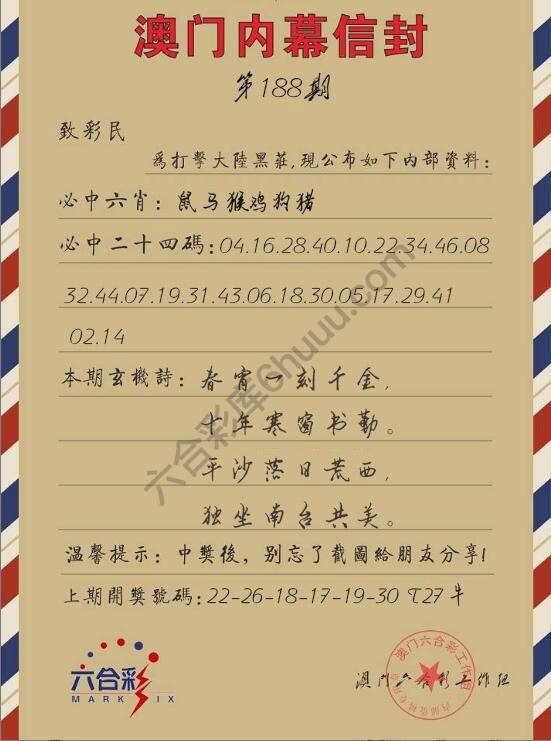 澳门内幕信封
第188期
致彩民
為打擊大陸黑莊,現公布如下内部資料:
必中六肖: 鼠马猴鸡狗猪
必中二十四碼:04.16.28.40.10.22.34.46.08
32.44.07.19.31.43.06.18.30.05.17.29.41
02.14
本期玄機詩: 春宵一刻千金,
十年寒窗书勤。
平沙落日荒西,
独坐南台共美。
温馨提示: 中獎後, 别忘了截圖給朋友分享!
上期開獎號碼:22-26-18-17-19-30 T27 牛
六合彩库6huuu.com
六合彩
MARK SIX
澳门六合彩工作组
澳门六合彩工作组